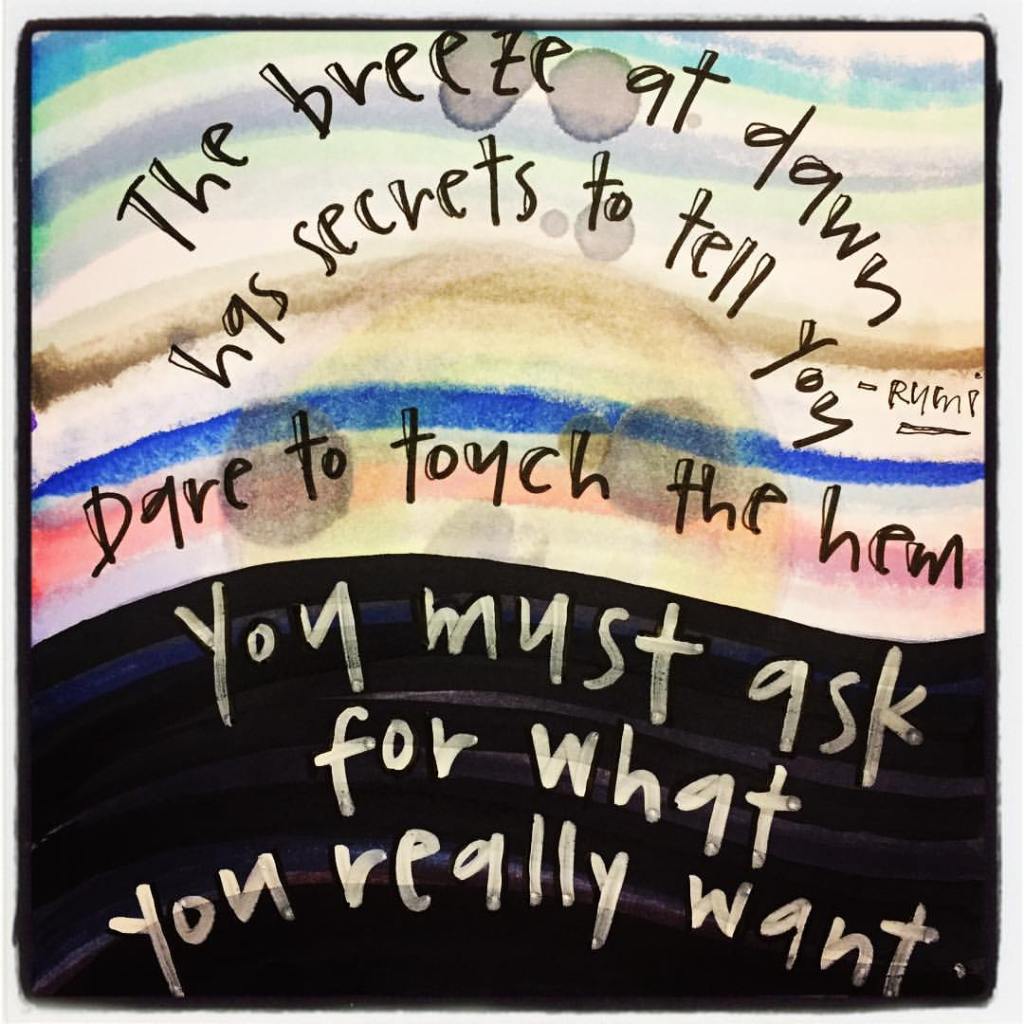 The breeze at dawn
has secrets to tell you
- Rumi
Dare to touch the hem
You must ask
for what
you really want.